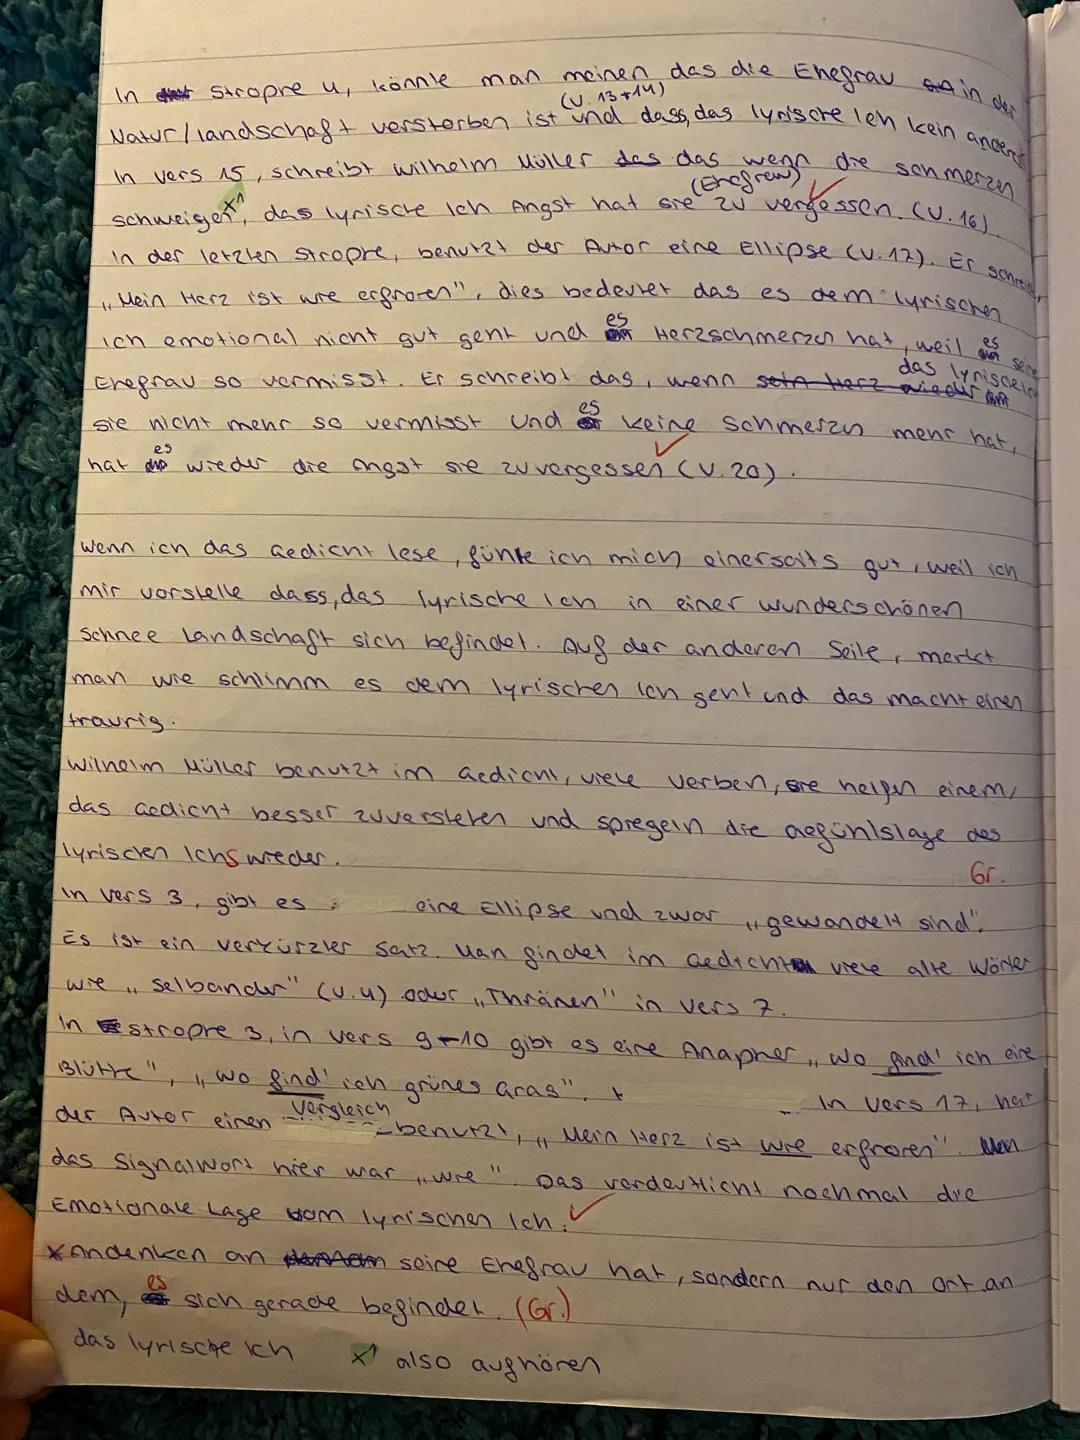 In Stropre 4, könnte man meinen das die Ehefrau in der
(V. 13+14)
Natur/landschaft verstorben ist und dass, das lyrische Ich kein anderes
In Vers 15, schreibt Wilhelm Müller das wenn die schmerzen
(Ehefrau)
schweigen x1, das lyrische Ich Angst hat sie zu vergessen. (V. 16)
In der letzten Strophe, benutzt der Autor eine Ellipse (V. 17). Er schreibt,
„Mein Herz ist wie erfroren", dies bedeutet das es dem lyrischen
Ich emotional nicht gut geht und es Herzschmerzen hat, weil es seine
Ehefrau so vermisst. Er schreibt das, wenn das lyrische Ich
sie nicht mehr so vermisst und es keine schmerzen mehr hat,
hat es wieder die Angst sie zuvergessen (V. 20).
Wenn ich das Gedicht lese, fühle ich mich einerseits gut, weil ich
mir vorstelle dass, das lyrische Ich in einer wunderschönen
Schnee Landschaft sich befindet. Auf der anderen Seite, merkt
man wie schlimm es dem lyrischen Ich geht und das macht einen
traurig.
Wilhelm Müller benutzt im Gedicht, viele Verben, sie helfen einem,
das Gedicht besser zuverstehen und spiegeln die Gefühlslage des
lyrischen Ichs wieder.
Gr.
In Vers 3, gibt es eine Ellipse und zwar „gewandelt sind".
Es ist ein verkürzter Satz. Man findet im Gedicht viele alte Wörter
wie „Selbander" (V. 4) oder „Thränen" in Vers 7.
In Strophe 3, in Vers 9+10 gibt es eine Anapher „Wo find' ich eine
Blüthe", „Wo find' ich grünes Gras".
In Vers 17, hat
der Autor einen Vergleich benutzt, „Mein Herz ist wie erfroren".
das Signalwort hier war „wie". Das verdeutlicht nochmal die
Emotionale Lage vom lyrischen Ich.
x Andenken an seine Ehefrau hat, sondern nur den Ort an
dem, es sich gerade befindet. (Gr.)
das lyrische Ich
x1 also aufhören